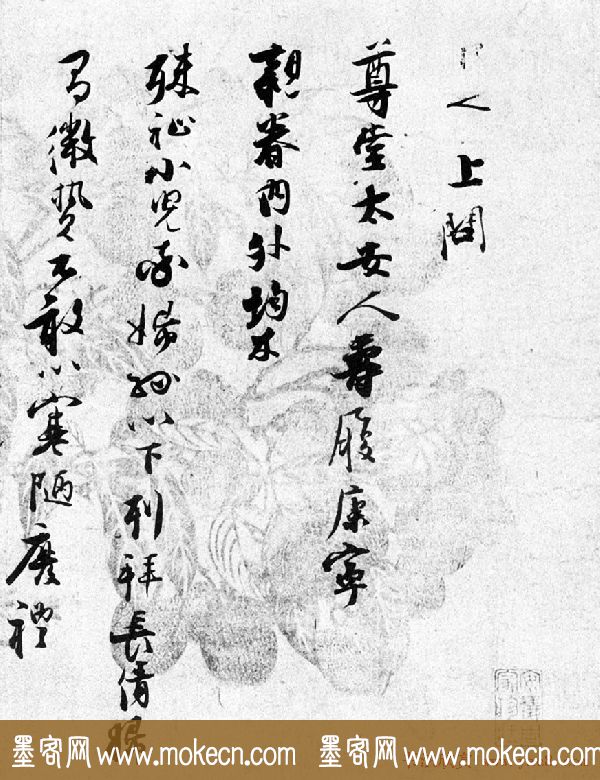 人上問
尊堂太安人尊履康寧
親眷內外均休
殊祉小兒婦以下列拜長倩
有微贄不敢以寒陋廢禮
墨客网 www.mokecn.com 墨客网 www.mokecn.com